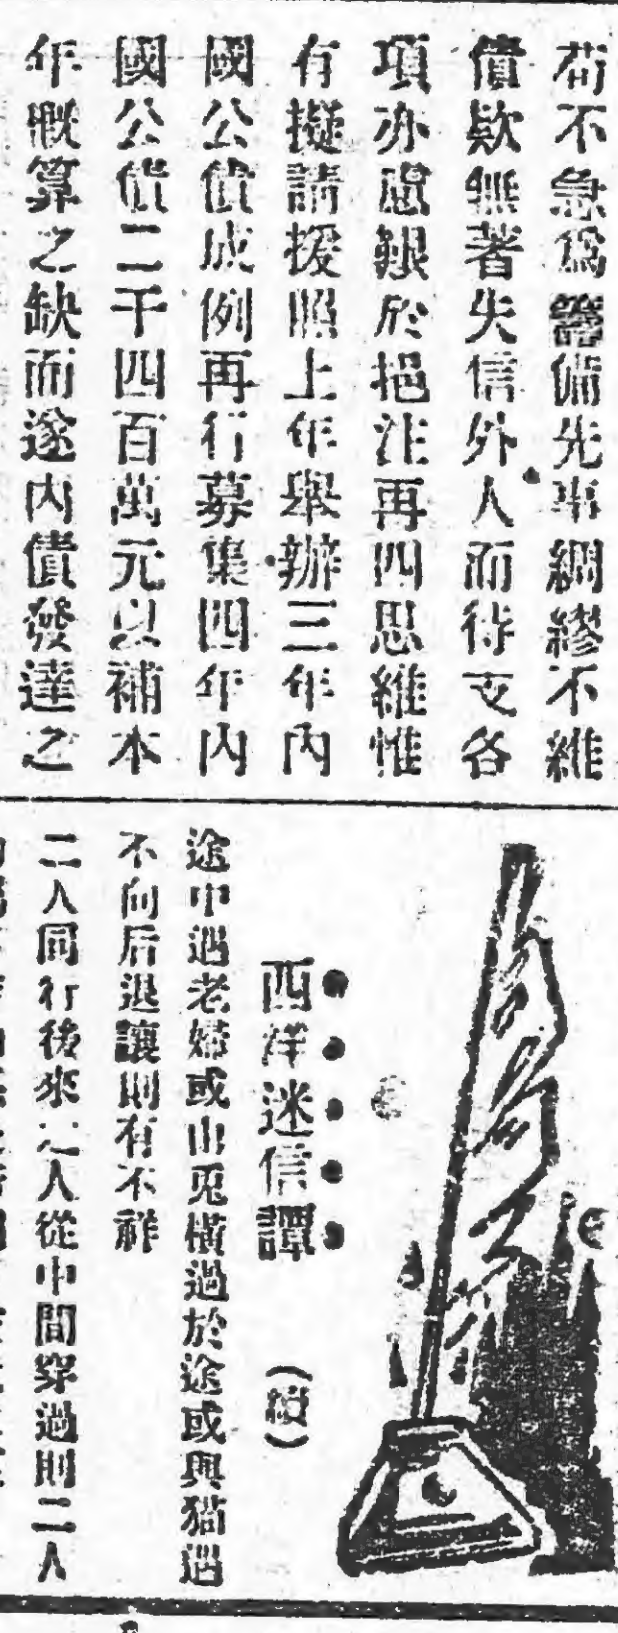 苟不急爲籌備先事綢繆不維
償欵無著失信外人而待支各
項亦慮艱於挹注再四思維惟
有擬請援照上年舉辦三年內
國公債成例再行募集四年內
國公債二千四百萬元以補本
年概算之缺而遂內債發達之
西洋迷信譚（續）
途中遇老婦或山兎橫過於途或與猫遇
不向后退讓則有不祥
二人同行後來之人從中間穿過則二人